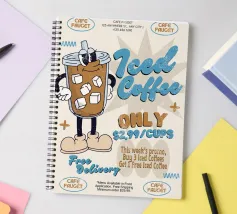 CAFE
FAUGET
CAFE
FAUGET
Iced
Coffee
ONLY
$2.99/CUPS
This week's promo,
Buy 3 Iced Coffees
Get 1 Free Iced Coffee
Free
Delivery
CAFE
FAUGET
CAFE
FAUGET